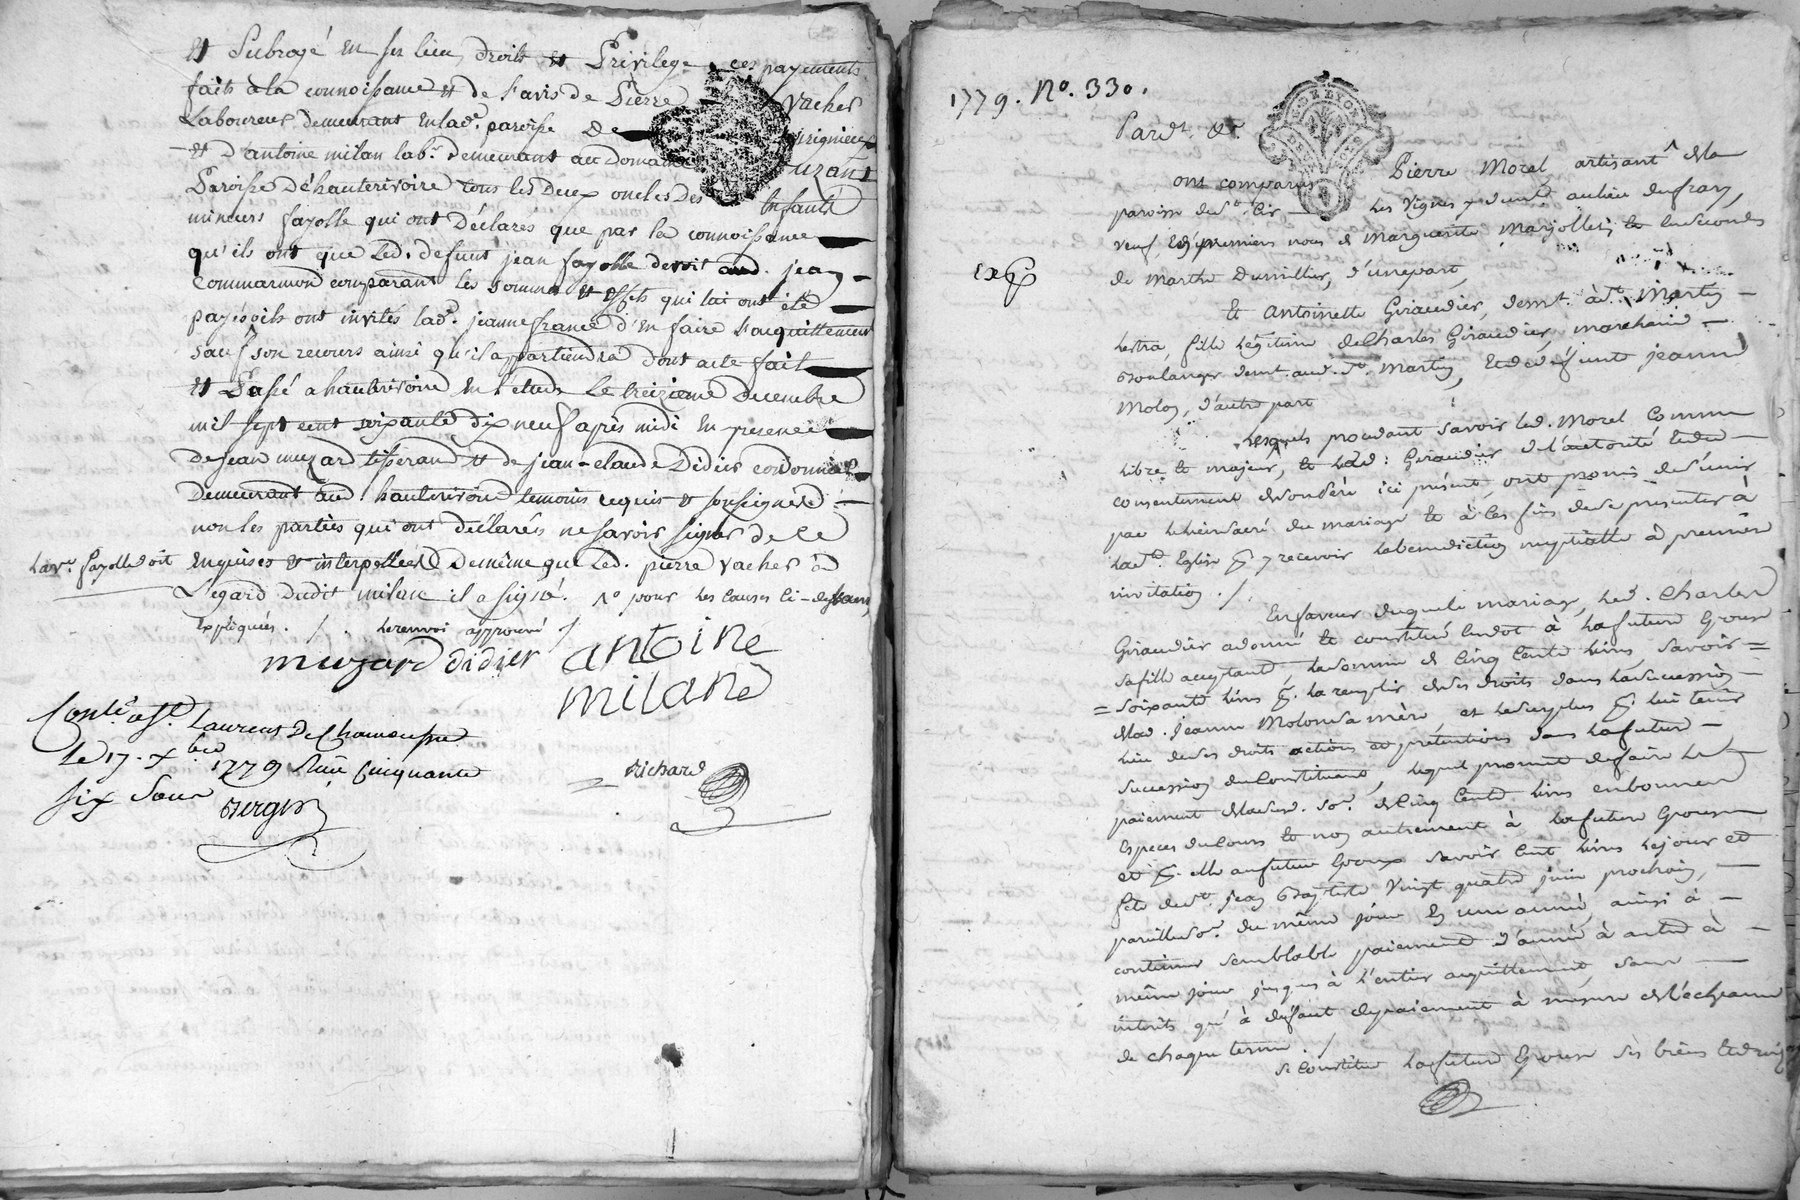 et Subrogé en ses lieu droits et Privilege ces payements
faits a la connoissance et de l'avis de Pierre Vacher
Laboureur demeurant en lad. paroisse De
et d'antoine milan labr. demeurant au Domaine
Paroisse D'hauterivoire tous les deux oncles Des Enfants
mineurs fayolle qui ont déclarés que par la connoissance
qu'ils ont que Led. defunt jean fayolle devoit aud. jean
Commarmond comparant les sommes et effets qui lui ont été
payés ils ont invités lad. jeanne france d'en faire l'acquittement
sauf son recours ainsi qu'il appartiendra dont acte fait
et Passé a hauterivoire en l'etude Le treizieme Decembre
mil sept cent soixante dix neuf après midi En presence
De jean muzard tisserand et de jean-claude Didier cordonnier
Demeurant aud. hauterivoire temoins requis et soussignés
non les parties qui ont déclarés ne savoir signer de ce
enquises et interpellées De même que Led. pierre vacher à
L'egard dudit milan il a signé. pour les causes ci-dessus
Expliquées. / . Le renvoi approuvé /
lad. ve. fayolle doit
muzard didier antoine
milane
Contlé a St. Laurent De Chamousset
Le 17. Xbre 1779 Reçu Cinquante
six Sous
Richard
1779. No. 330.
Pardt. &c.
ont comparus Pierre Morel artisant
paroisse de St. Cir Les Vignes y demt. au lieu du fray,
veuf en premiers nous de Marguerite Marjollet, et en secondes
de Marthe Dumillier, d'une part,
Exp
Et Antoinette Giraudier, demt. à St. Martin
Lestra, fille Legitime de Charles Giraudier, marchand
Boulanger demt. aud. St. Martin, et de defunt jeanne
Molon, d'autre part
Lesquels procedant savoir led. Morel Comme
Libre et majeur, et lad. Giraudier de l'autorité et du
consentement de son père ici présent, ont promis de s'unir
par le lien sacré du mariage et à ces fins de se presenter à
la Ste. Eglise pr. y recevoir la benediction nuptialle à premiere
invitation. /.
En faveur duquel mariage, led. Charles
Giraudier a donné et constitué en dot à la future Epouse
sa fille acceptante, la somme de Cinq Cents livres, savoir
soixante livres pr. la remplir de ses droits dans la succession
de lad. Jeanne Molon sa mère, et le surplus pr. lui tenir
lieu de ses droits actions et prétentions dans la future
succession du Constituant, lequel promet de faire le
paiement de lad. so. de Cinq Cents livres en bonnes
Especes du Cours et non autrement à la future Epouse
et pr. elle au futur Epoux savoir Cent livres le jour et
fete de St. Jean Baptiste Vingt quatre juin prochain,
pareille so. du même jour En une année, ainsi à
continuer semblable paiement d'année à autre à
même jour jusques à l'entier acquittement sans
interets qu'à deffaut de paiement à mesure de l'echeance
de chaque terme. /
Se Constitue la future Epouse ses biens et droits